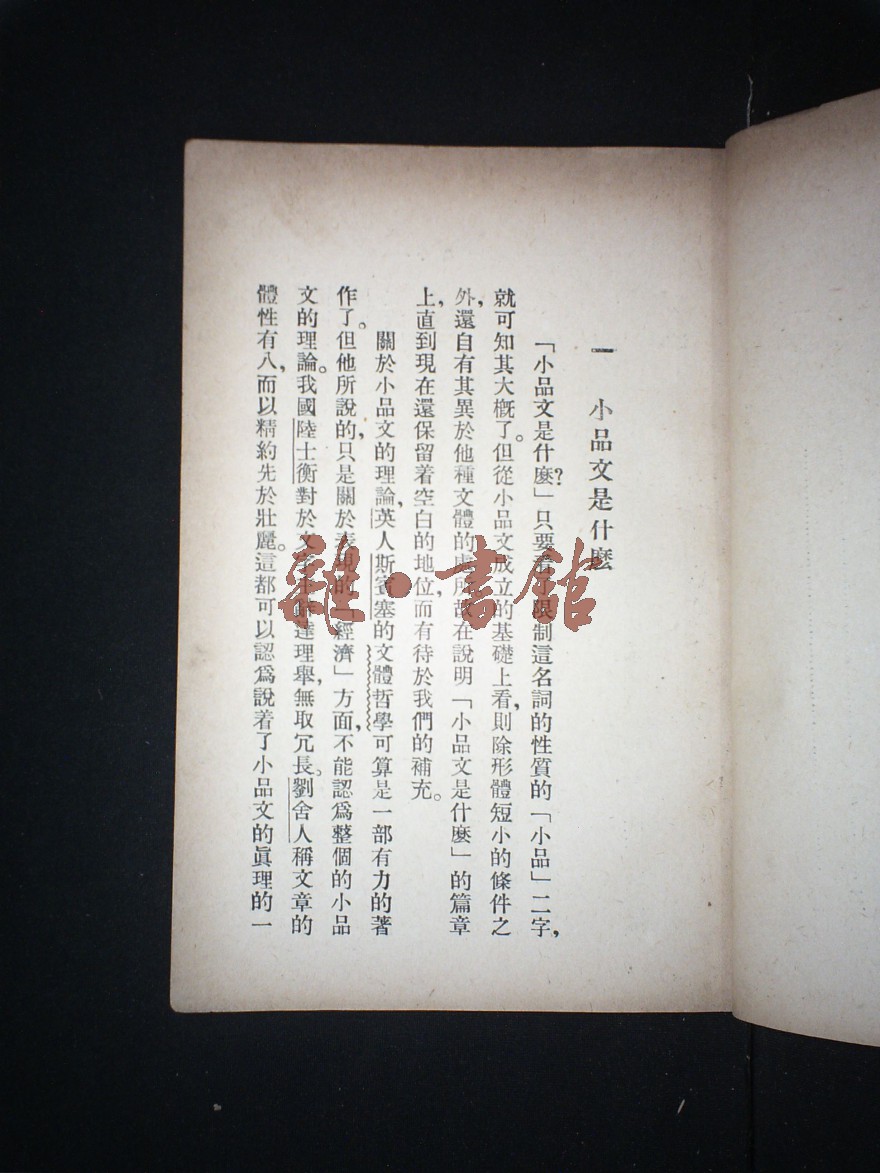 一 小品文是什麼
「小品文是什麼？」只要看了限制這名詞的性質的「小品」二字，
就可知其大概了。但從小品文成立的基礎上看，則除形體短小的條件之
外，還自有其異於他種文體的處所故在說明「小品文是什麼」的篇章
上，直到現在還保留着空白的地位，而有待於我們的補充。
關於小品文的理論，英人斯賓塞的文體哲學可算是一部有力的著
作了。但他所說的，只是關於表現的「經濟」方面，不能認爲整個的小品
文的理論。我國陸士衡對於文 達理舉，無取冗長。劉舍人稱文章的
體性有八，而以精約先於壯麗。這都可以認爲說着了小品文的眞理的一
雜·書館